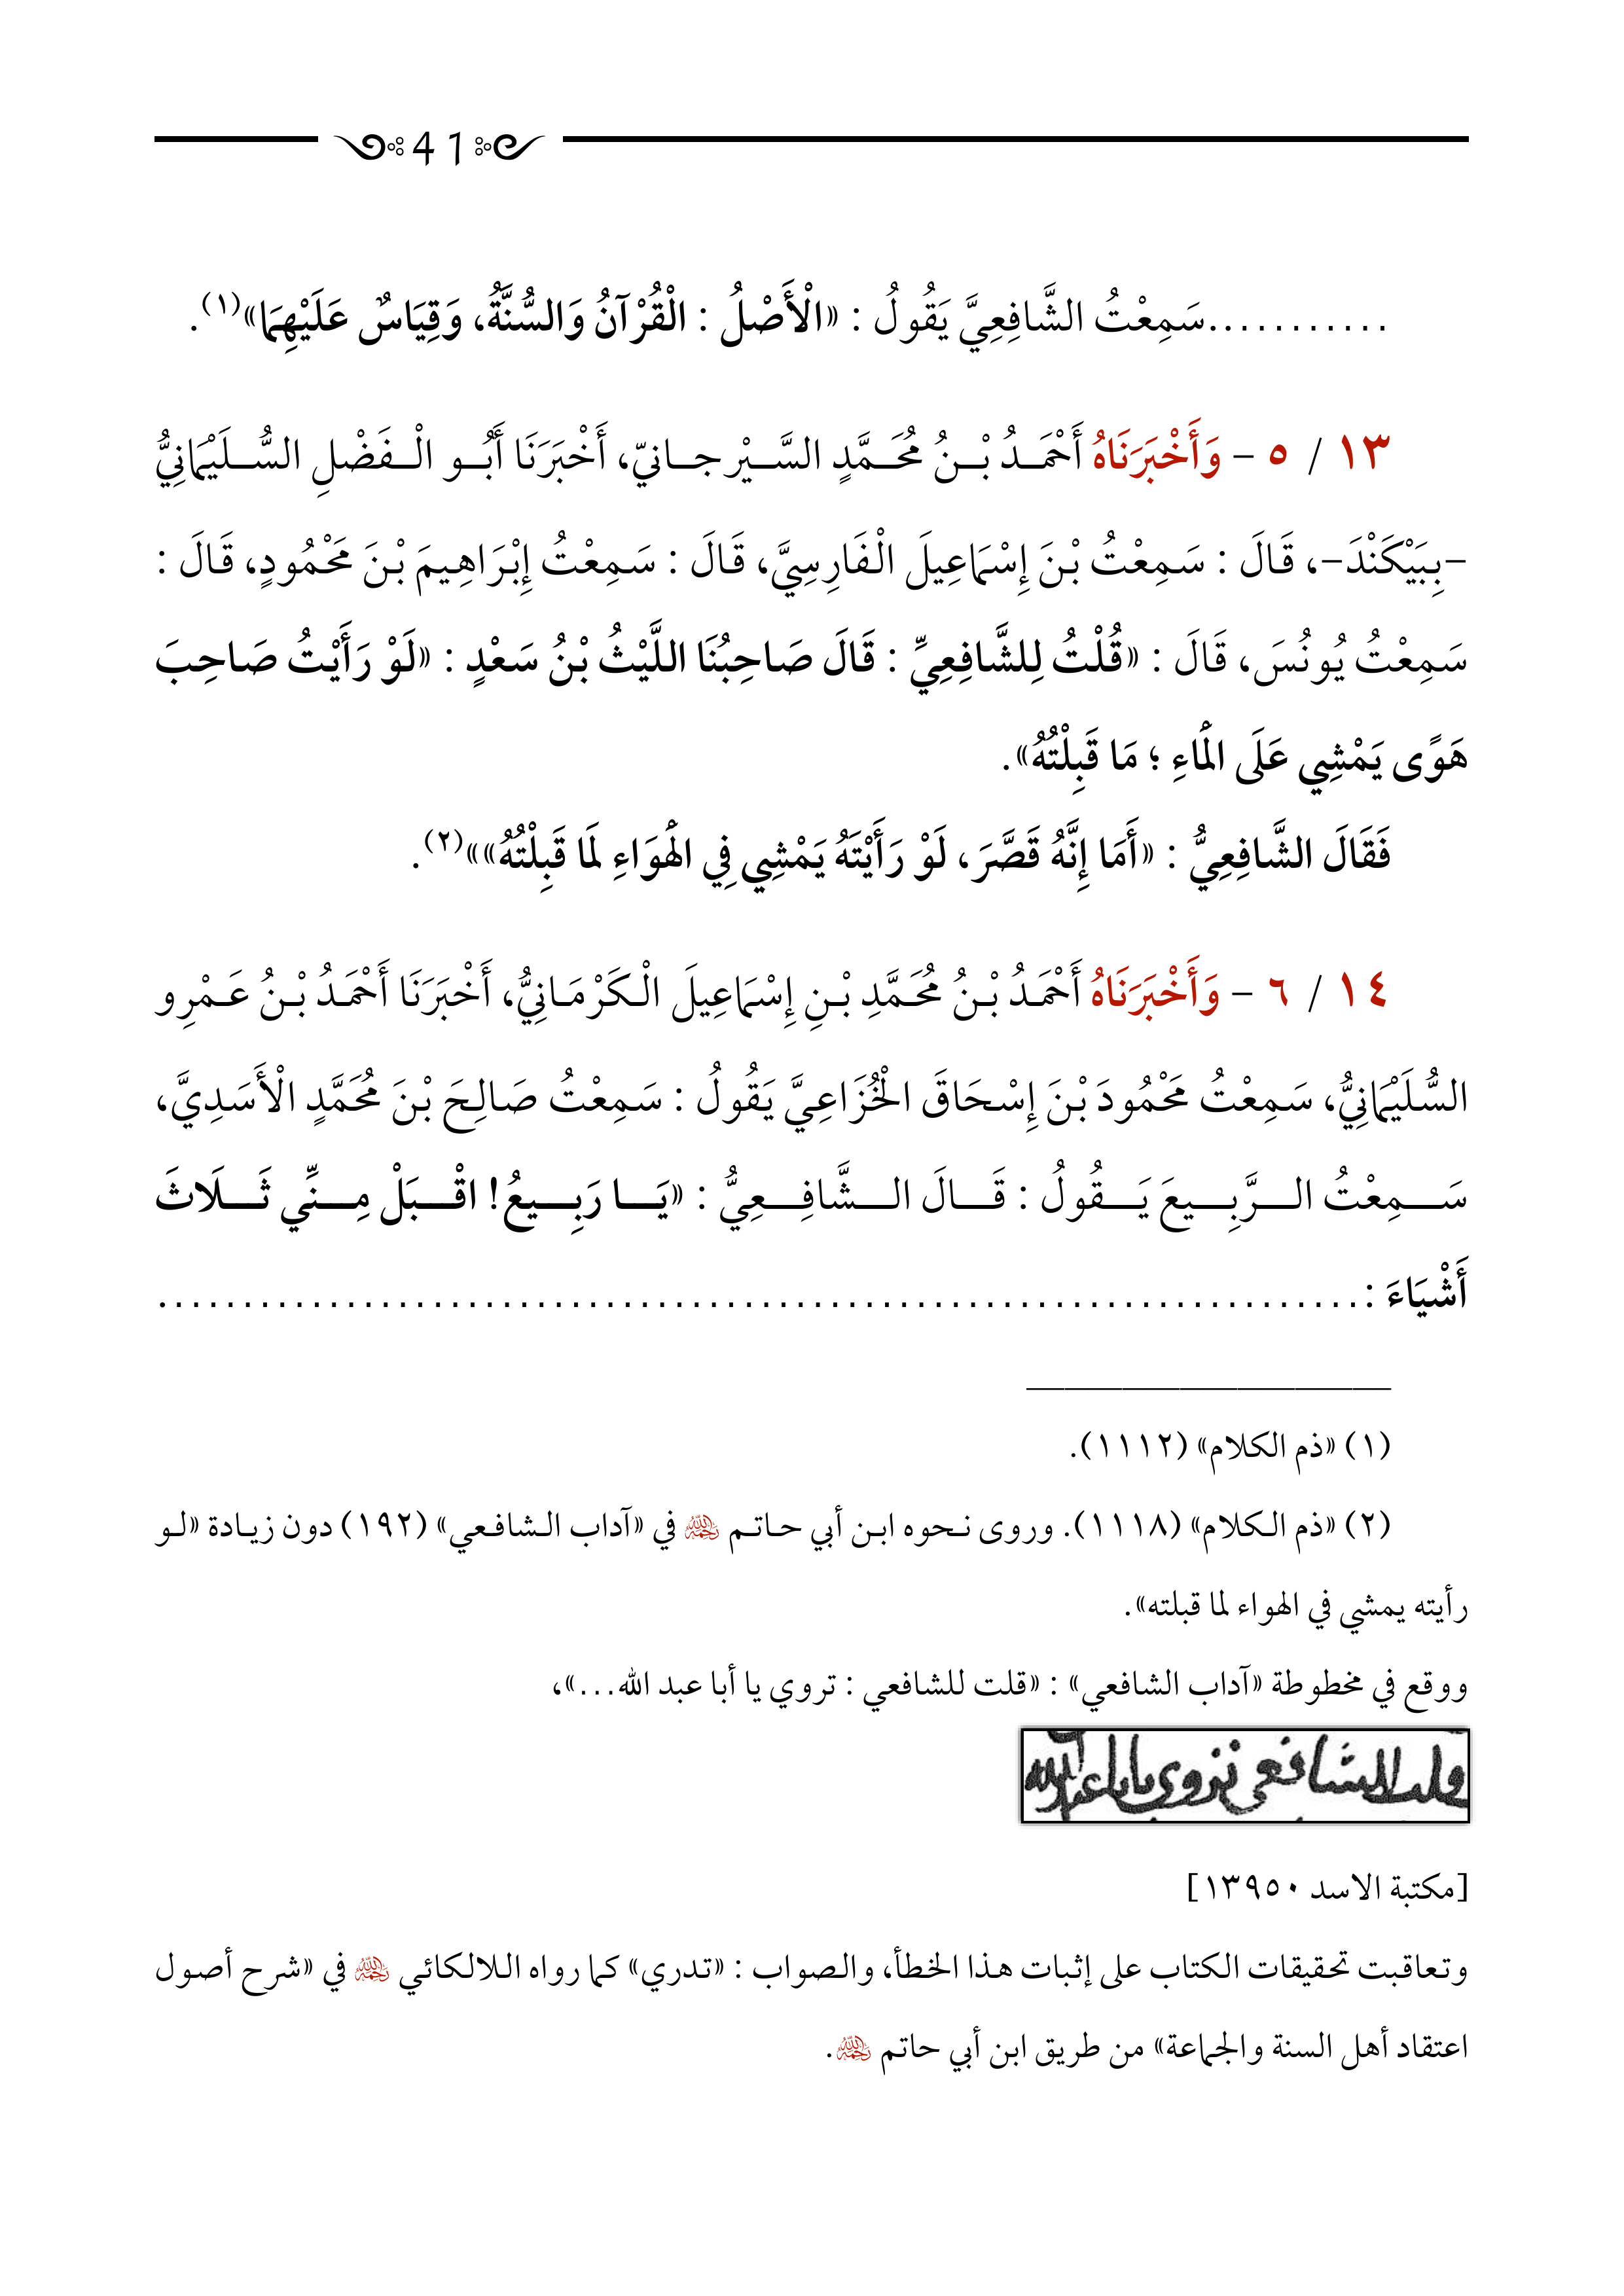 41
...........سَمِعْتُ الشَّافِعِيَّ يَقُولُ : «الْأَصْلُ : الْقُرْآنُ وَالسُّنَّةُ، وَقِيَاسٌ عَلَيْهِمَا»(١).
١٣ / ٥ - وَأَخْبَرَنَاهُ أَحْمَدُ بْنُ مُحَمَّدٍ السَّيْرجانيّ، أَخْبَرَنَا أَبُو الْفَضْلِ السُّلَيْمَانِيُّ
-بِبَيْكَنْدَ-، قَالَ : سَمِعْتُ بْنَ إِسْمَاعِيلَ الْفَارِسِيَّ، قَالَ : سَمِعْتُ إِبْرَاهِيمَ بْنَ مَحْمُودٍ، قَالَ :
سَمِعْتُ يُونُسَ، قَالَ : «قُلْتُ لِلشَّافِعِيِّ : قَالَ صَاحِبُنَا اللَّيْثُ بْنُ سَعْدٍ : «لَوْ رَأَيْتُ صَاحِبَ
هَوًى يَمْشِي عَلَى الْمَاءِ ؛ مَا قَبِلْتُهُ».
فَقَالَ الشَّافِعِيُّ : «أَمَا إِنَّهُ قَصَّرَ، لَوْ رَأَيْتَهُ يَمْشِي فِي الْهَوَاءِ لَمَا قَبِلْتُهُ»»(٢).
١٤ / ٦ - وَأَخْبَرَنَاهُ أَحْمَدُ بْنُ مُحَمَّدِ بْنِ إِسْمَاعِيلَ الْكَرْمَانِيُّ، أَخْبَرَنَا أَحْمَدُ بْنُ عَمْرِو
السُّلَيْمَانِيُّ، سَمِعْتُ مَحْمُودَ بْنَ إِسْحَاقَ الْخُزَاعِيَّ يَقُولُ : سَمِعْتُ صَالِحَ بْنَ مُحَمَّدٍ الْأَسَدِيَّ،
سَمِعْتُ الرَّبِيعَ يَقُولُ : قَالَ الشَّافِعِيُّ : «يَا رَبِيعُ! اقْبَلْ مِنِّي ثَلَاثَ
أَشْيَاءَ :......................................................................
(١) «ذم الكلام» (١١١٢).
(٢) «ذم الكلام» (١١١٨). وروى نحوه ابن أبي حاتم رحمه الله في «آداب الشافعي» (١٩٢) دون زيادة «لو
رأيته يمشي في الهواء لما قبلته».
ووقع في مخطوطة «آداب الشافعي» : «قلت للشافعي : تروي يا أبا عبد الله...»،
قلت للشافعي تروي يابا عبد الله
[مكتبة الاسد ١٣٩٥٠]
وتعاقبت تحقيقات الكتاب على إثبات هذا الخطأ، والصواب : «تدري» كما رواه اللالكائي رحمه الله في «شرح أصول
اعتقاد أهل السنة والجماعة» من طريق ابن أبي حاتم رحمه الله.